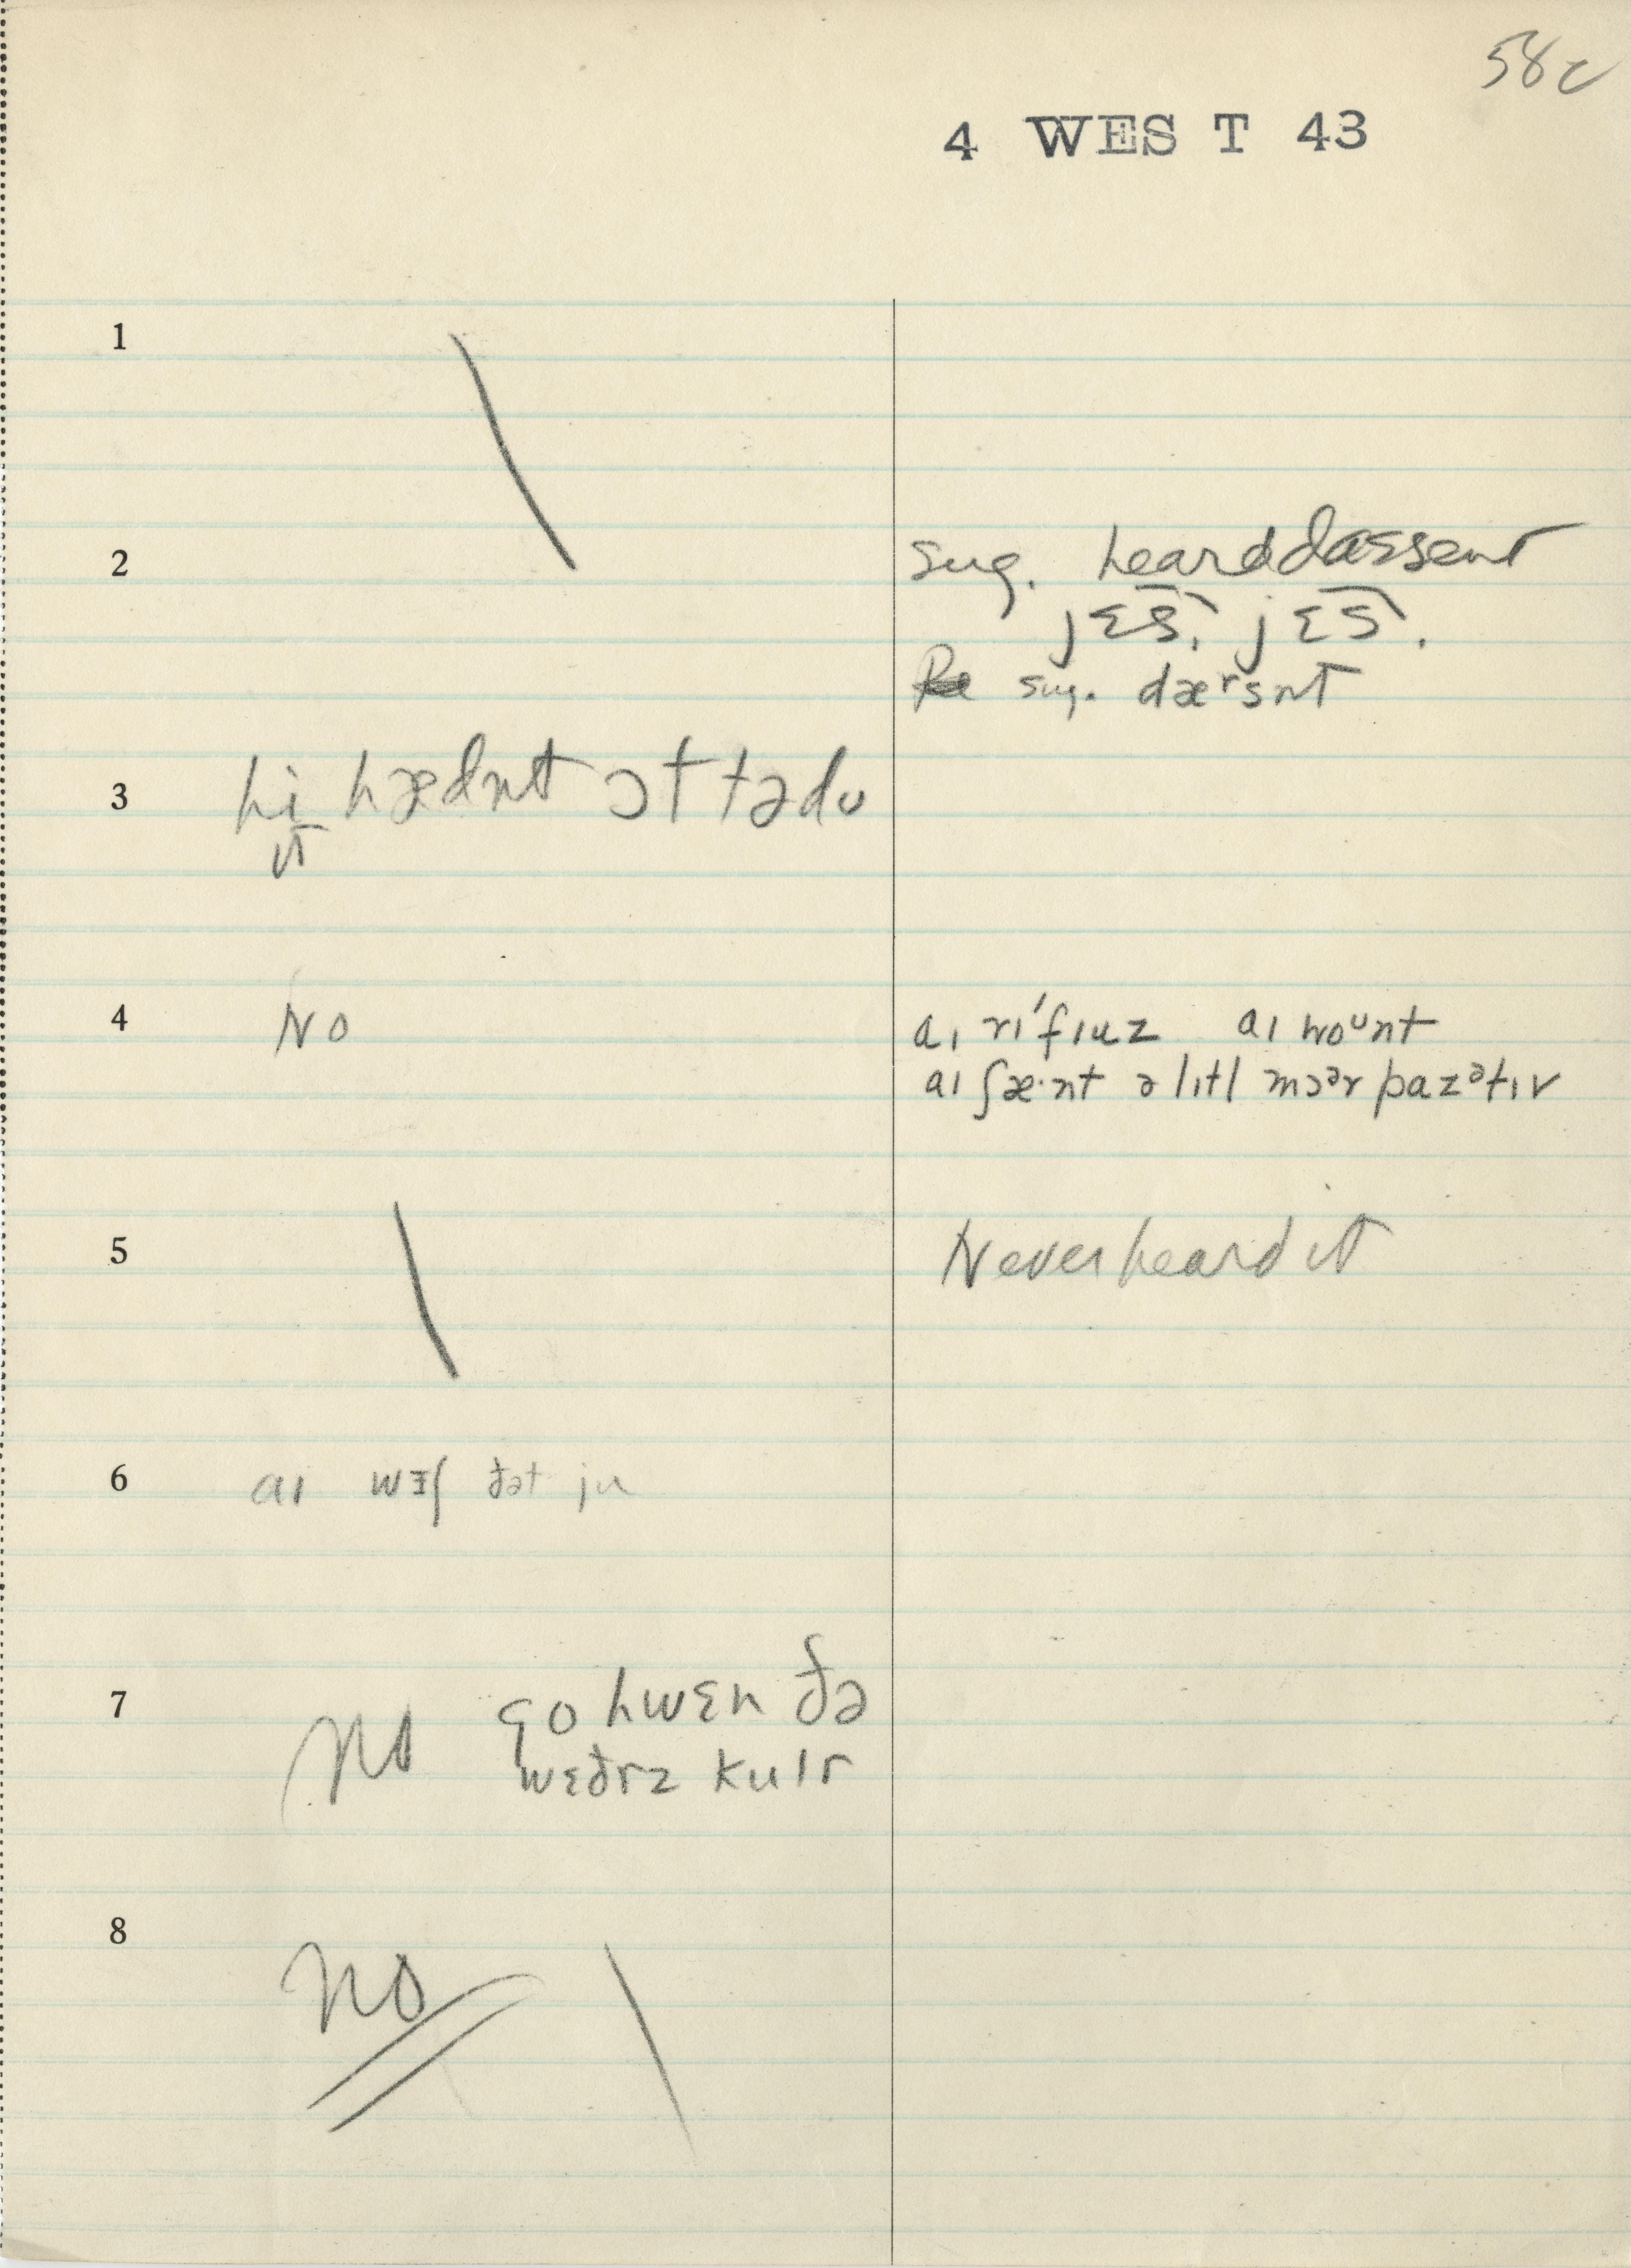 58c
4 WEST 43
1
2
sug. heard dassent
jɛs, jɛs.
sug. dærsnt
3 hi hædnt ɔt tədu
ɪt
4 No
aɪ rɪ'fɪuz aɪ woᵘnt
aɪ ʃæ·nt ə lɪtl mɔər pazətɪv
5
Never heard it
6 aɪ wɪʃ ðət ju
7 No go hwɛn ðə
wɛðrz kulr
8 No